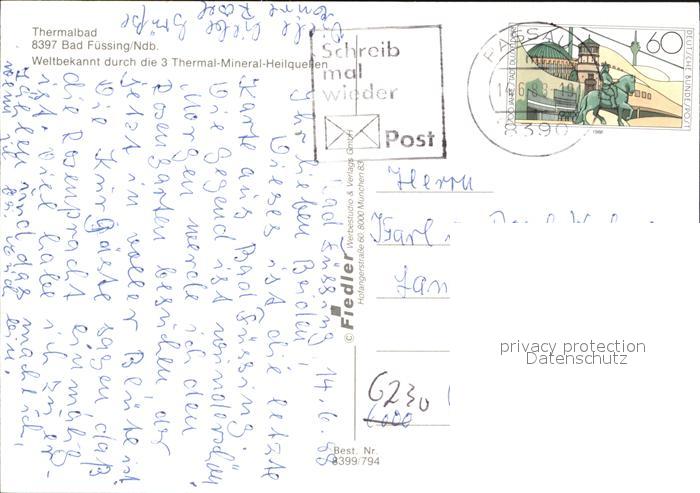 Thermalbad
8397 Bad Füssing/Ndb.
Weltbekannt durch die 3 Thermal-Mineral-Heilquellen
Bad Füssing 14.6.88
Ihr lieben Beiden!
Dieses ist die letzte
Karte aus Bad Füssing.
Die Gegend ist wunderschön
Morgen werde ich den
Rosengarten besuchen der
jetzt in voller Blüte ist
Die Kurgäste sagen daß
die Rosenpracht einmalig
ist. Viel habe ich Euch zu
erzählen und das mache ich,
wenn ich
Liebe Grüße
Schreib
mal
wieder
Post
PASSAU
14.6.88-19
8390
60
DEUTSCHE BUNDESPOST
2000 JAHRE STADT DUISBURG
1988
© Fiedler
Werbestudio & Verlags GmbH
Hofangerstraße 60, 8000 München 83
Best. Nr.
8399/794
Herrn
Karl
6230
6000
privacy protection
Datenschutz